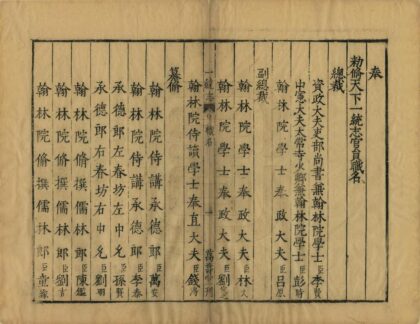 奉
勑脩天下一統志官員職名
總裁
資政大夫吏部尚書兼翰林院學士臣李賢
中憲大夫太常寺少卿兼翰林院學士臣彭時
翰林院學士奉政大夫臣呂原
副總裁
翰林院學士奉政大夫臣林文
翰林院學士奉政大夫臣劉
一統志
職名
一
萬壽堂刊
纂脩
翰林院侍讀學士奉直大夫臣錢溥
翰林院侍講承德郎臣萬安
翰林院侍講承德郎臣李泰
承德郎左春坊左中允臣孫賢
承德郎右春坊右中允臣劉珝
翰林院脩撰儒林郎臣陳鑑
翰林院脩撰儒林郎臣劉吉
翰林院脩撰儒林郎臣童緣